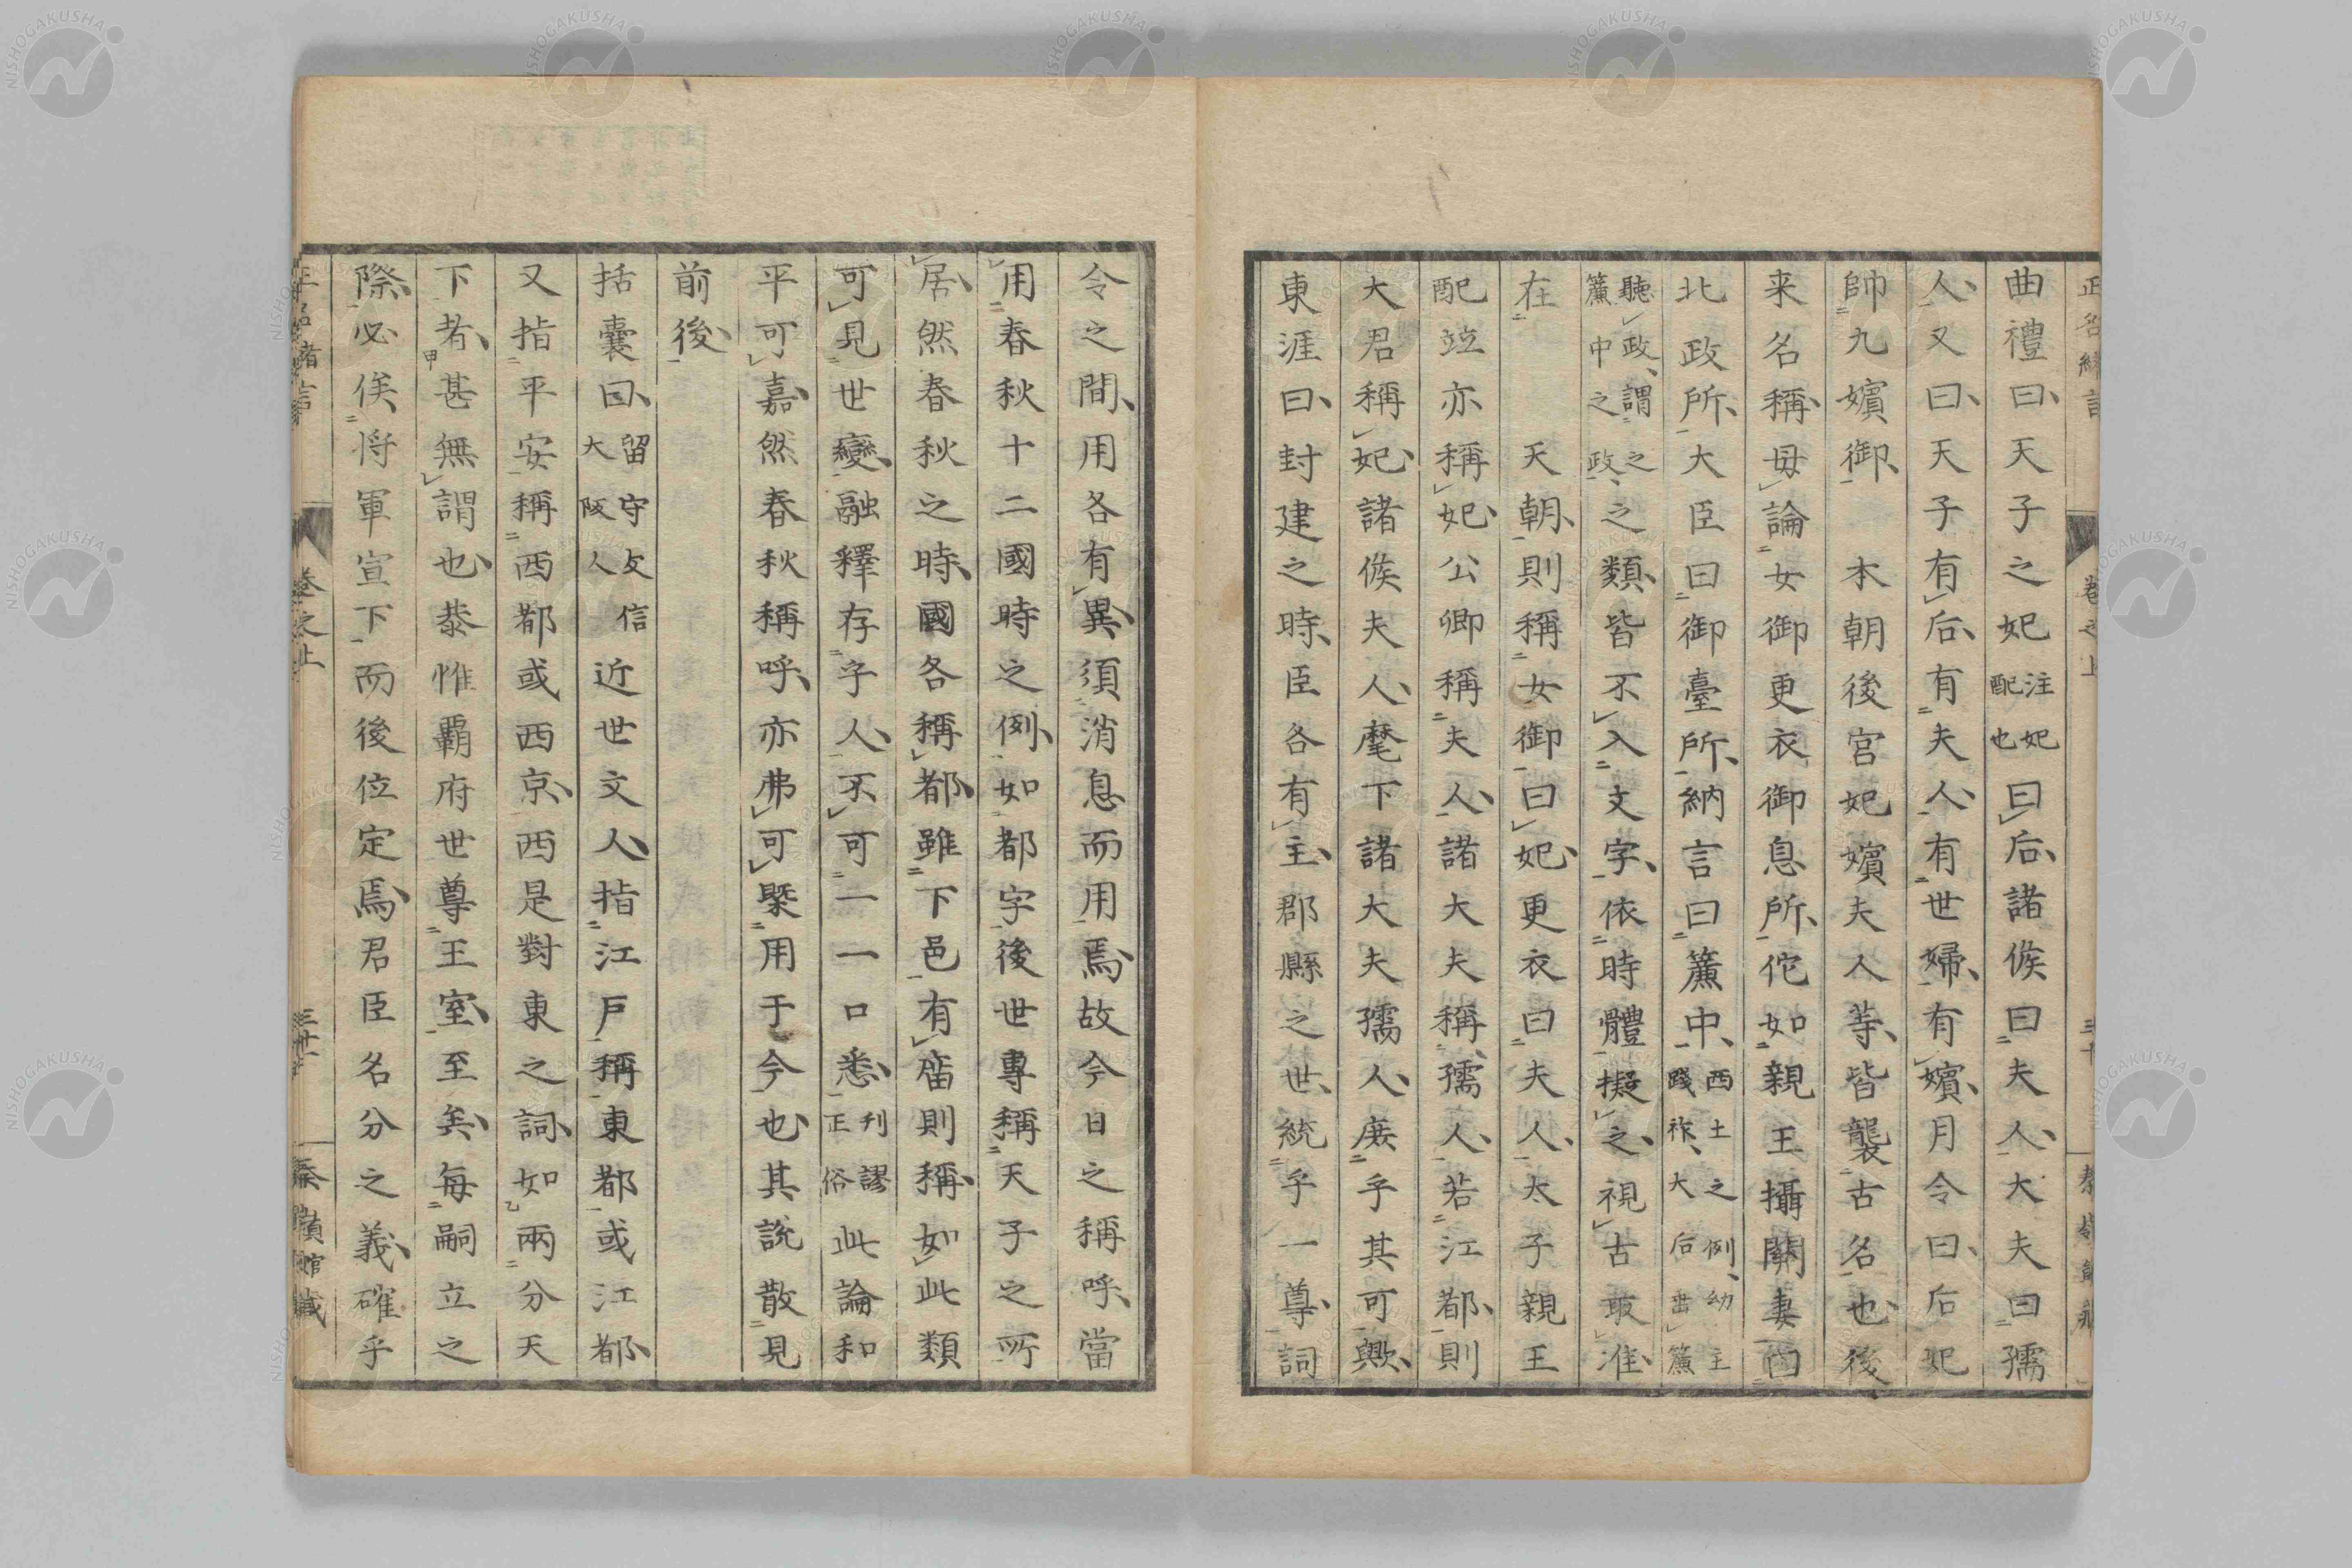 曲禮曰天子之妃注妃配也曰后諸侯曰夫人大夫曰孺
人又曰天子有后有夫人有世婦有嬪月令曰后妃
帥九嬪御 本朝後宮妃嬪夫人等皆襲古名也後
来名稱毋論女御更衣御息所佗如親王攝關妻曰
北政所大臣曰御臺所納言曰簾中西土之例幼主踐祚大后出簾
聽政謂之簾中之政之類皆不入文字依時體擬之視古敢准
在 天朝則稱女御曰妃更衣曰夫人太子親王
配竝亦稱妃公卿稱夫人諸大夫稱孺人若江都則
大君稱妃諸侯夫人麾下諸大夫孺人庶乎其可歟
東涯曰封建之時臣各有主郡縣之世統乎一尊詞
令之間用各有異須消息而用焉故今日之稱呼當
用春秋十二國時之例如都字後世專稱天子之所
居然春秋之時國各稱都雖下邑有廟則稱如此類
可見世變融釋存乎人不可一一口悉刊謬正俗此論和
平可嘉然春秋稱呼亦弗可槩用于今也其説散見
前後
括囊曰留守友信大阪人近世文人指江戸稱東都或江都
又指平安稱西都或西京西是對東之詞如兩分天
下者甚無謂也恭惟覇府世尊王室至矣毎嗣立之
際必俟将軍宣下而後位定焉君臣名分之義確乎
正名緒言
卷之上
三十
NISHOGAKUSHA